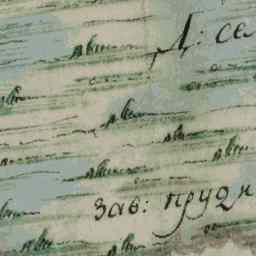 Д: сел
Зав: прудн